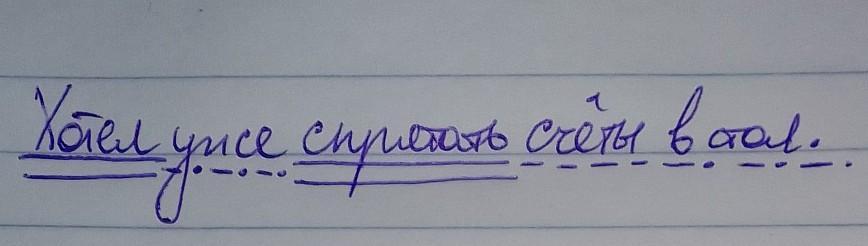 Хотел уже спрятать счёты в стол.